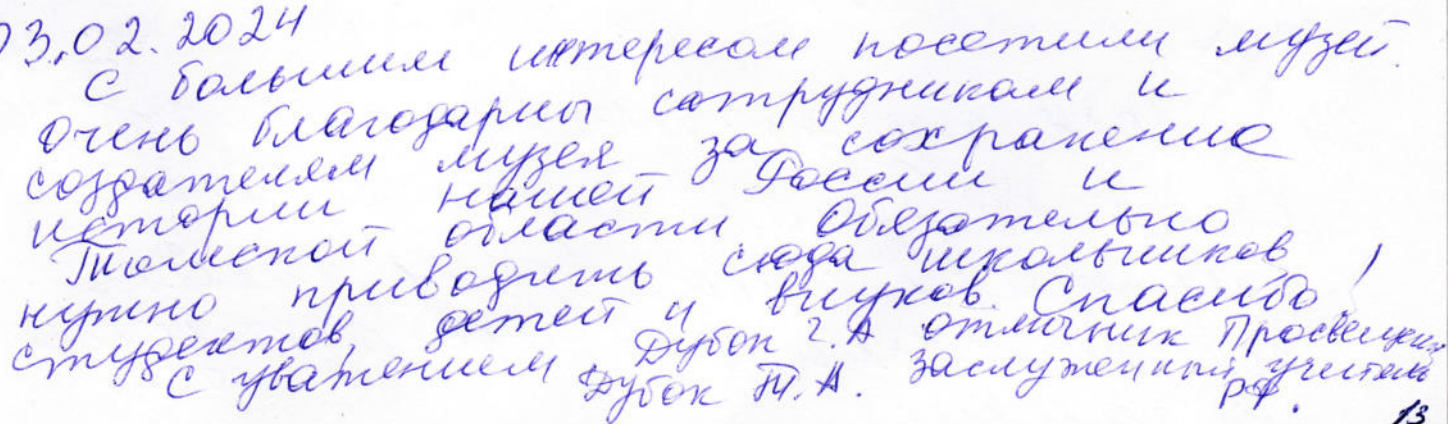 03.02.2024
С большим интересом посетили музей.
Очень благодарны сотрудникам и
создателям музея за сохранение
истории нашей России и
Томской области Обязательно
нужно приводить сюда школьников,
студентов, детей и внуков. Спасибо!
С уважением Дубок Г.А отличник Просвещения
Дубок Т.А. заслуженный учитель
РФ.
13